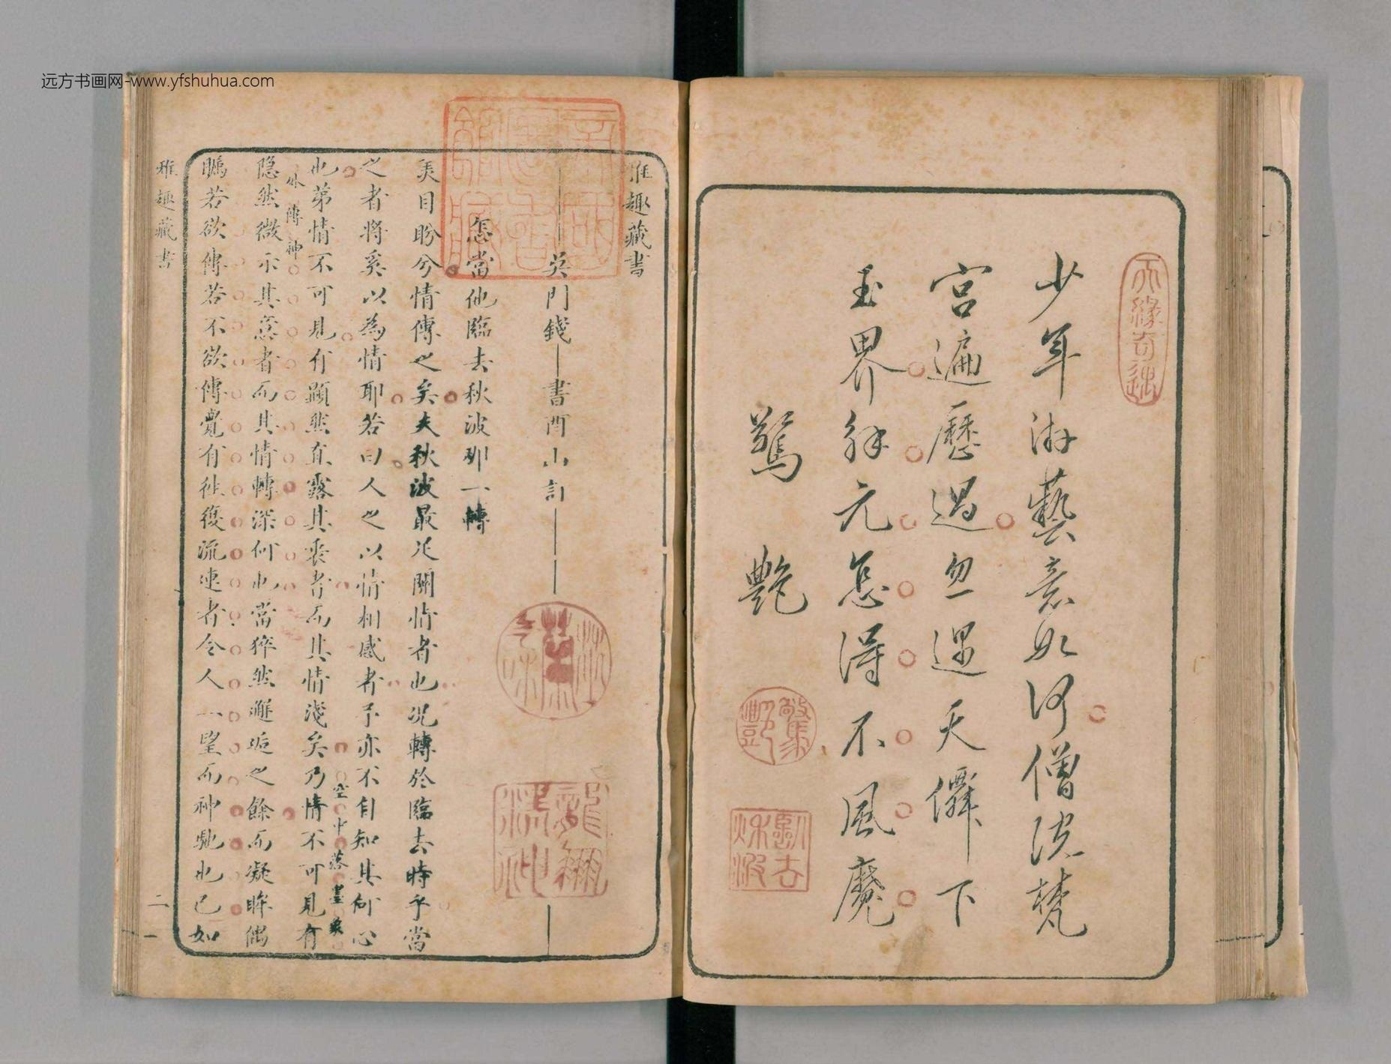 远方书画网-www.yfshuhua.com
天緣奇遇
少年游藝意如何僧院梵
宮遍歷過忽遇天僊下
玉界解元怎得不風魔
驚艷
驚艷
臨去秋波
雅趣藏書
吳門錢書酉山訂
怎當他臨去秋波那一轉
美目盼兮情傳之矣夫秋波最足關情者也况轉於臨去時乎當
之者將奚以為情耶若曰人之以情相感者予亦不自知其何心
空中落墨
也第情不可見有顯然直露其衷者而其情淺矣乃情不可見有
傳神
隐然微示其意者而其情轉深何也當猝然邂逅之餘而凝眸偶
矚若欲傳若不欲傳覺有往復流連者令人一望而神馳也已如
雅趣藏書
二